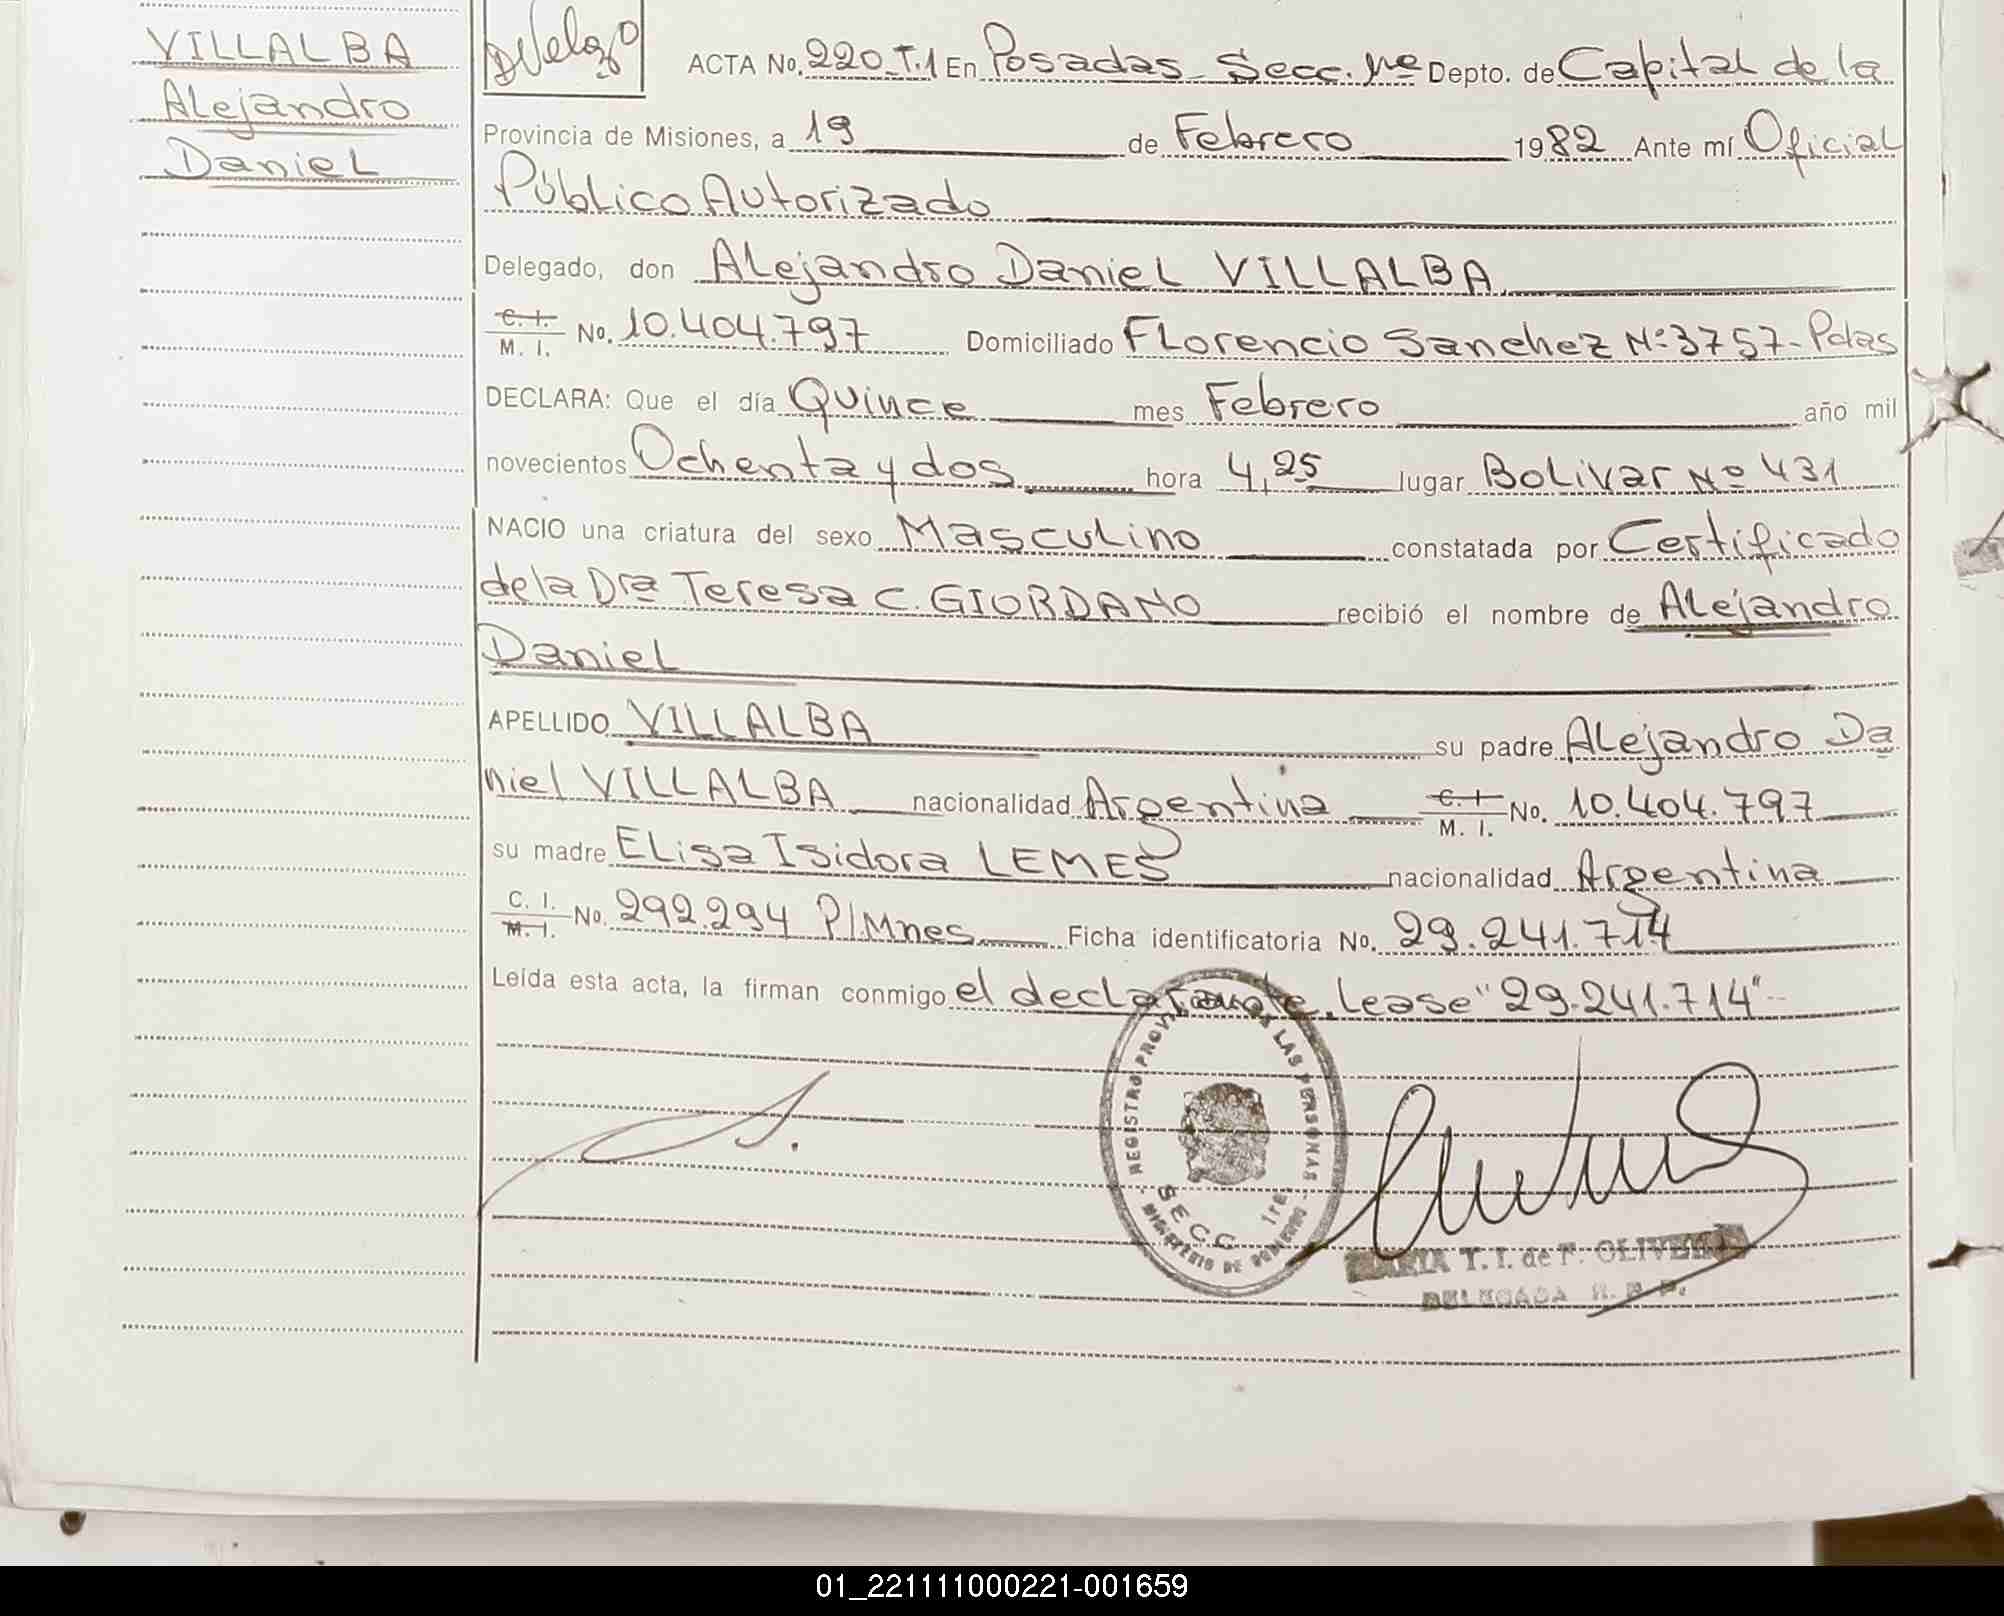 VILLALBA
Alejandro
Daniel
ACTA No. 220 T.1 En Posadas Secc. 1ra Depto. de Capital de la
Provincia de Misiones, a 19 de Febrero 1982 Ante mí Oficial
Público Autorizado
Delegado, don Alejandro Daniel VILLALBA
C. I.
M. I. No. 10.404.797 Domiciliado Florencio Sanchez Nº 3757- Pdas
DECLARA: Que el día Quince mes Febrero año mil
novecientos Ochenta y dos hora 4,25 lugar Bolivar Nº 431
NACIO una criatura del sexo Masculino constatada por Certificado
de la Dra Teresa C. GIORDANO recibió el nombre de Alejandro
Daniel
APELLIDO VILLALBA su padre Alejandro Da
niel VILLALBA nacionalidad Argentina C. I.
M. I. No. 10.404.797
su madre Elisa Isidora LEMES nacionalidad Argentina
C. I.
M. I. No. 292.294 P/Mnes Ficha identificatoria No. 29.241.714
Leída esta acta, la firman conmigo el declarante. Lease "29.241.714"-
REGISTRO PROVINCIAL DE LAS PERSONAS
SECC 1ra
MINISTERIO DE GOBIERNO
MARIA T. I. de F. OLIVEIRA
DELEGADA R. P. P.
01_221111000221-001659